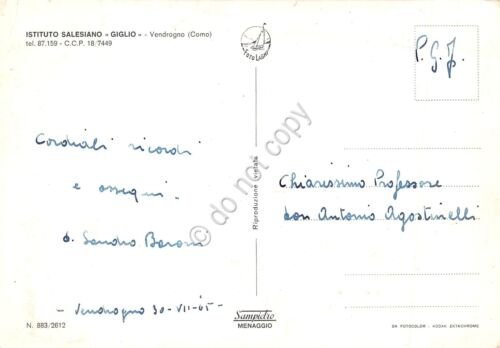 ISTITUTO SALESIANO « GIGLIO » - Vendrogno (Como)
tel. 87.159 - C.C.P. 18/7449
FOTO LARIO
P. G. J.
Cordiali ricordi
e ossequi.
d. Sandro Baroni
- Vendrogno 30-VII-65 -
Chiarissimo Professore
don Antonio Agostinelli
Riproduzione vietata
© do not copy
N. 883/2612
Sampietro
MENAGGIO
DA FOTOCOLOR - KODAK EKTACHROME